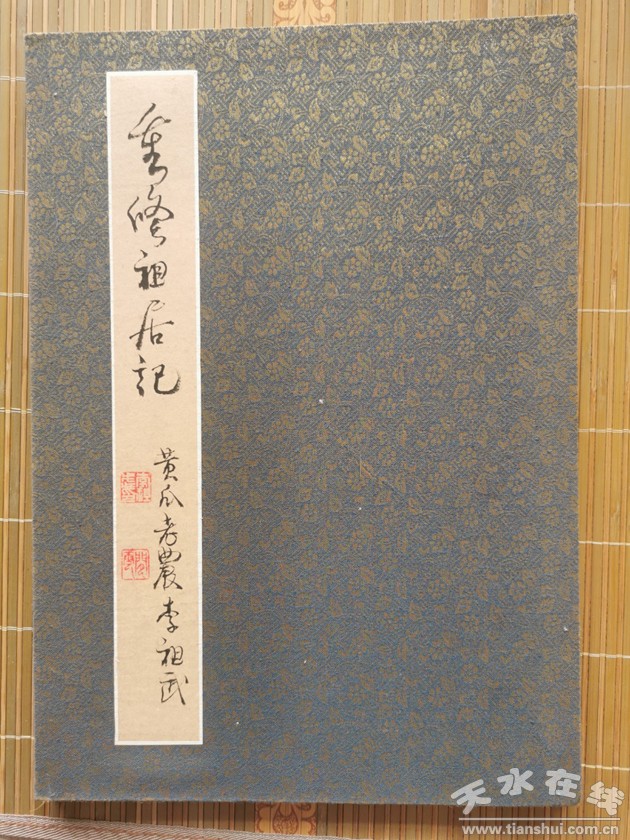 重修祖居记
黄瓜老農李祖武
天水在线
www.tianshui.com.cn